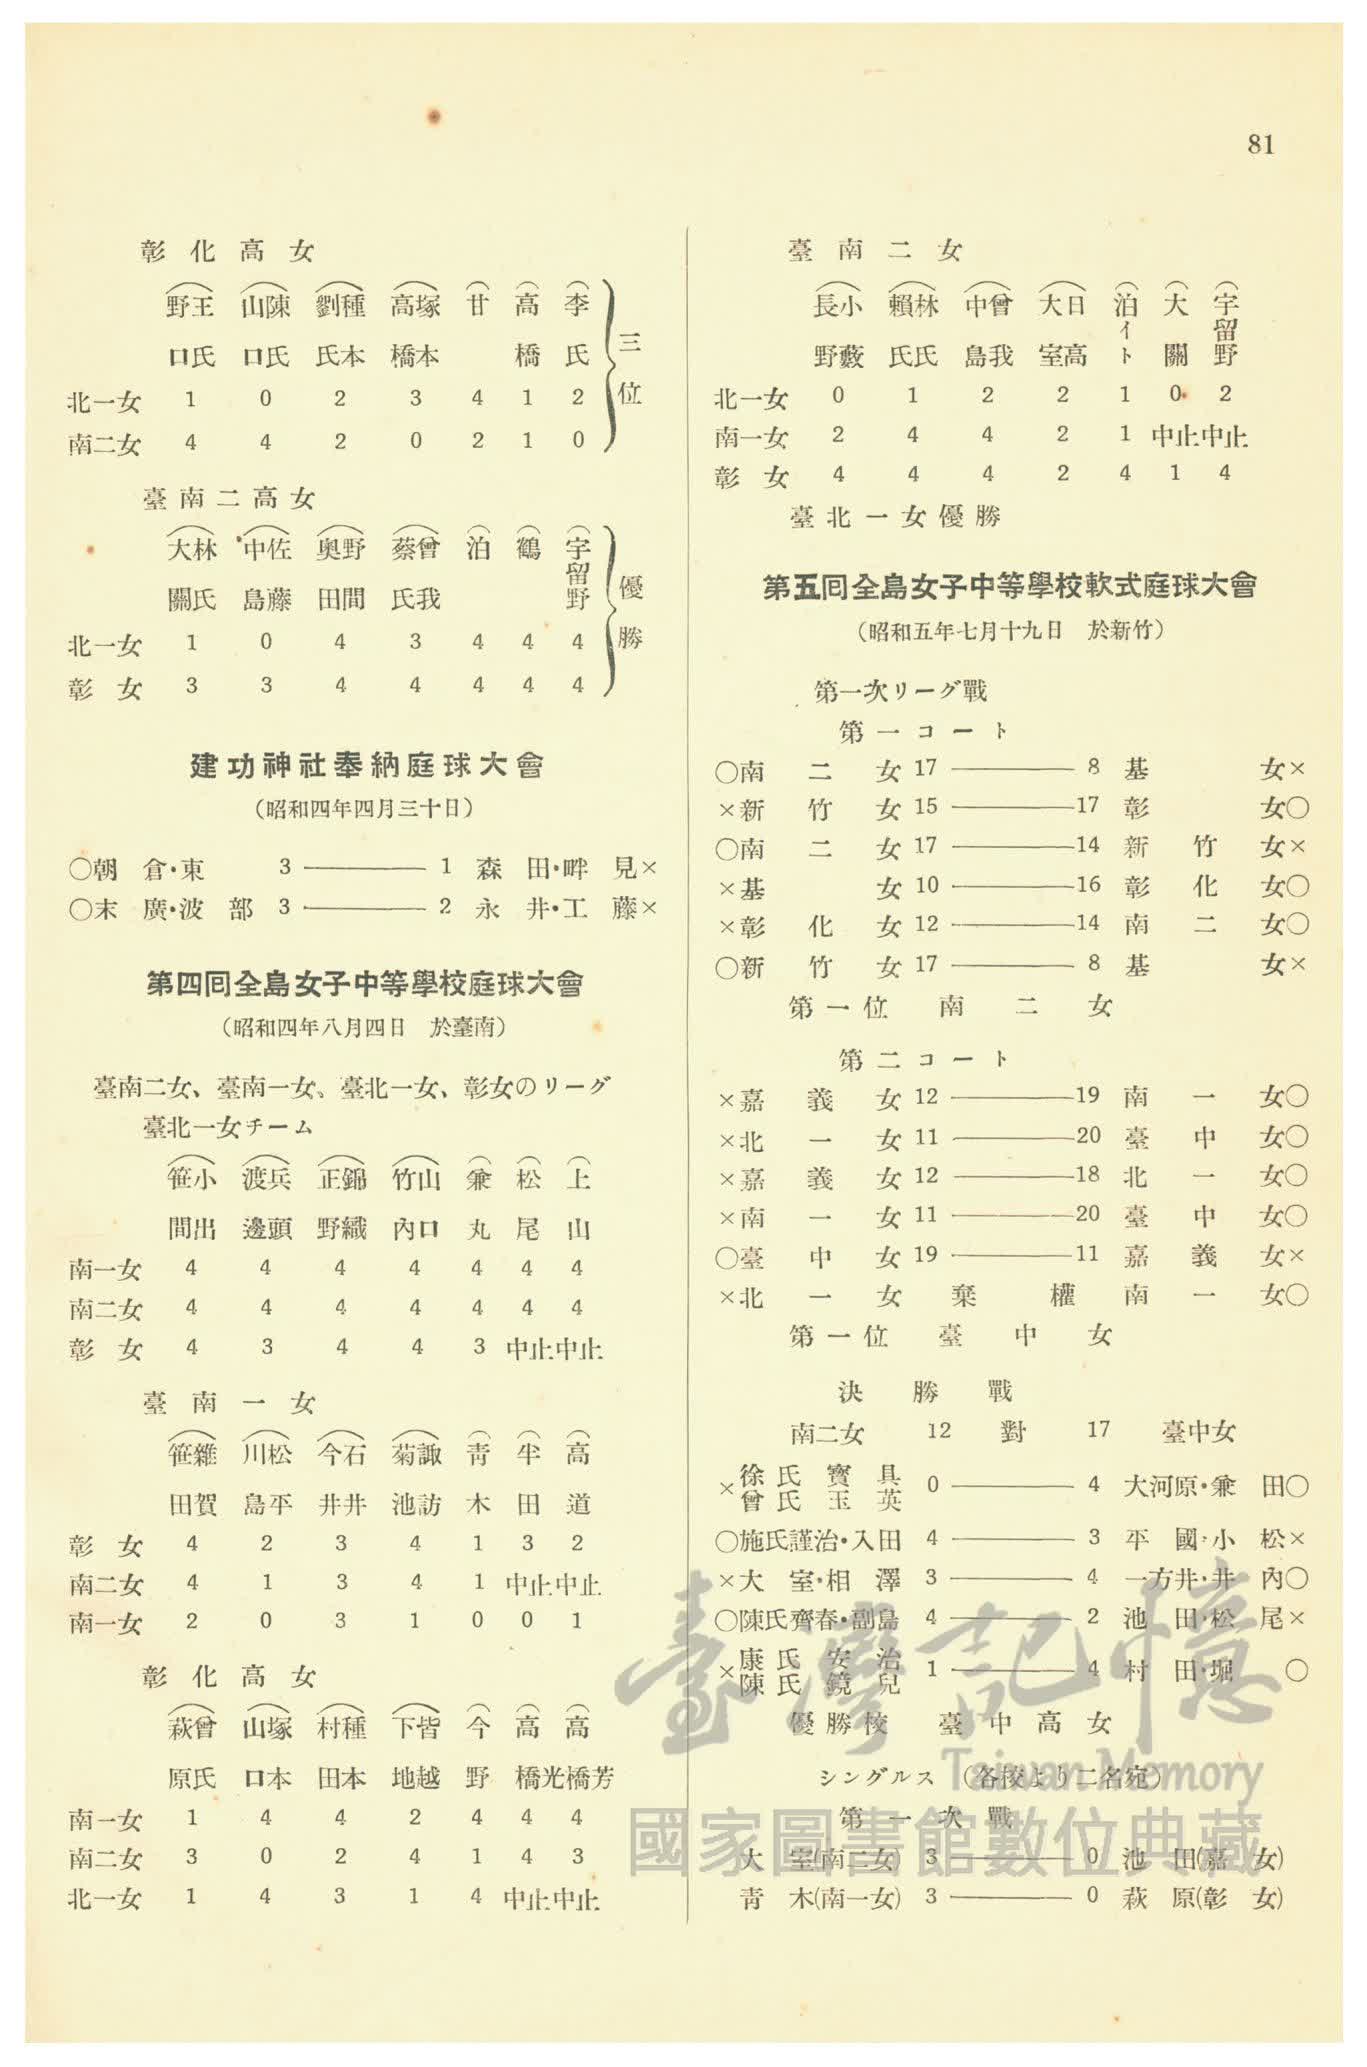 81
彰化高女
王氏 野口 陳氏 山口 種本 劉氏 塚本 高橋 甘 高橋 李氏 三位
北一女 1 0 2 3 4 1 2
南二女 4 4 2 0 2 1 0
臺南二高女
林氏 大關 佐藤 中島 野間 奥田 曾我 蔡氏 泊 鶴 宇留野 優勝
北一女 1 0 4 3 4 4 4
彰女 3 3 4 4 4 4 4
建功神社奉納庭球大會
(昭和四年四月三十日)
○朝倉・東 3 ――― 1 森田・畔見×
○末廣・波部 3 ――― 2 永井・工藤×
第四囘全島女子中等學校庭球大會
(昭和四年八月四日 於臺南)
臺南二女、臺南一女、臺北一女、彰女のリーグ
臺北一女チーム
小出 笹間 兵頭 渡邊 錦織 正野 山口 竹內 兼丸 松尾 上山
南一女 4 4 4 4 4 4 4
南二女 4 4 4 4 4 4 4
彰女 4 3 4 4 3 中止 中止
臺南一女
雜賀 笹田 松平 川島 石井 今井 諏訪 菊池 靑木 半田 高道
彰女 4 2 3 4 1 3 2
南二女 4 1 3 4 1 中止 中止
南一女 2 0 3 1 0 0 1
彰化高女
曾氏 萩原 塚本 山口 種本 村田 皆越 下地 今野 高橋光 高橋芳
南一女 1 4 4 2 4 4 4
南二女 3 0 2 4 1 4 3
北一女 1 4 3 1 4 中止 中止
臺南二女
小藪 長野 林氏 賴氏 曾我 中島 日高 大室 泊イト 大關 宇留野
北一女 0 1 2 2 1 0 2
南一女 2 4 4 2 1 中止 中止
彰女 4 4 4 2 4 1 4
臺北一女優勝
第五囘全島女子中等學校軟式庭球大會
(昭和五年七月十九日 於新竹)
第一次リーグ戰
第一コート
○南二女 17 ――― 8 基女×
×新竹女 15 ――― 17 彰女○
○南二女 17 ――― 14 新竹女×
×基女 10 ――― 16 彰化女○
×彰化女 12 ――― 14 南二女○
○新竹女 17 ――― 8 基女×
第一位 南二女
第二コート
×嘉義女 12 ――― 19 南一女○
×北一女 11 ――― 20 臺中女○
×嘉義女 12 ――― 18 北一女○
×南一女 11 ――― 20 臺中女○
○臺中女 19 ――― 11 嘉義女×
×北一女 棄權 南一女○
第一位 臺中女
決勝戰
南二女 12 對 17 臺中女
×徐氏寶具 曾氏玉英 0 ――― 4 大河原・兼田○
○施氏謹治・入田 4 ――― 3 平國・小松×
×大室・相澤 3 ――― 4 一方井・井內○
○陳氏齊春・副島 4 ――― 2 池田・松尾×
×康氏安治 陳氏鏡兒 1 ――― 4 村田・堀○
優勝校 臺中高女
シングルス (各校より二名宛)
第一次戰
大室(南二女) 3 ――― 0 池田(嘉女)
靑木(南一女) 3 ――― 0 萩原(彰女)
臺灣記憶
Taiwan Memory
國家圖書館數位典藏